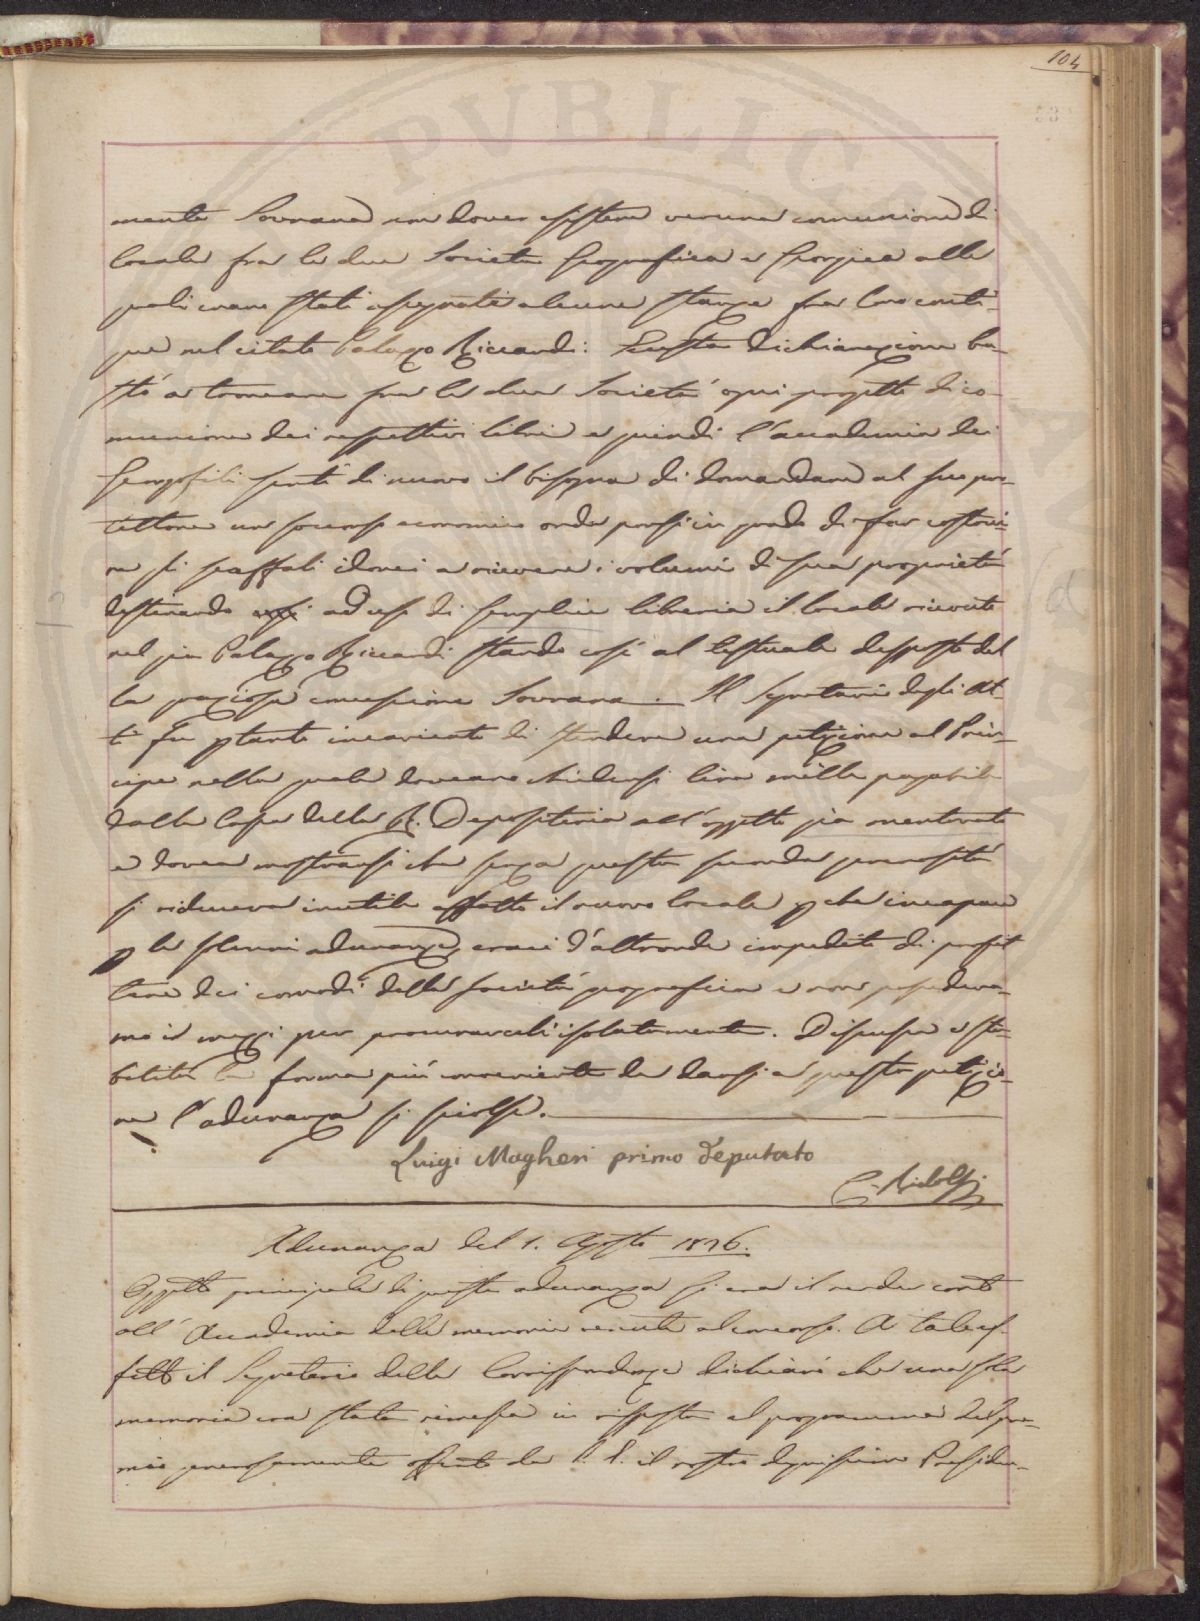 104
mente Sovrana non dover esistere veruna comunione di
locale fra le due Società Geografica e Georgica alle
quali erano stati assegnate alcune stanze fra loro conti-
gue nel citato Palazzo Riccardi. Questa dichiarazione ba-
stò a troncare fra le due Società ogni progetto di co-
munione dei respettivi libri e quindi l'accademia dei
Georgofili sentì di nuovo il bisogno di domandare al suo pro-
tettore un soccorso economico onde porsi in grado di far costrui-
re gli scaffali idonei a ricevere i volumi di sua proprietà
destinando ad uso di semplice libreria il locale ricevuto
nel già Palazzo Riccardi stando così al testuale disposto del
la graziosa concessione Sovrana. Il Segretario degli At-
ti fu ptanto incaricato di stendere una petizione al Prin-
cipe nella quale doveano chiedersi lire mille pagabili
dalla Cassa della R. Depositeria all'oggetto già mentovato
e dovea mostrarsi che senza questa seconda generosità
si riduceva inutile affatto il nuovo locale p che incapace
p le solenni adunanze, eraci d'altronde impedito di profit
tare dei comodi della società geografica e non possedeva-
mo i mezzi per procurarceli isolatamente. Discussa e sta-
bilita la forma più conveniente da darsi a questa petizio-
ne l'adunanza si sciolse.
Luigi Magheri primo deputato
C. Ridolfi
Adunanza del 1. Agosto 1826.
Oggetto principale di questa adunanza si era il render conto
all'Accademia delle memorie venute al concorso. A tale ef-
fetto il Segretario delle Corrispondenze dichiarò che una sola
memoria era stata rimessa in risposta al programma del pre-
mio generosamente offerto da S. E. il nostro degnissimo Presiden-